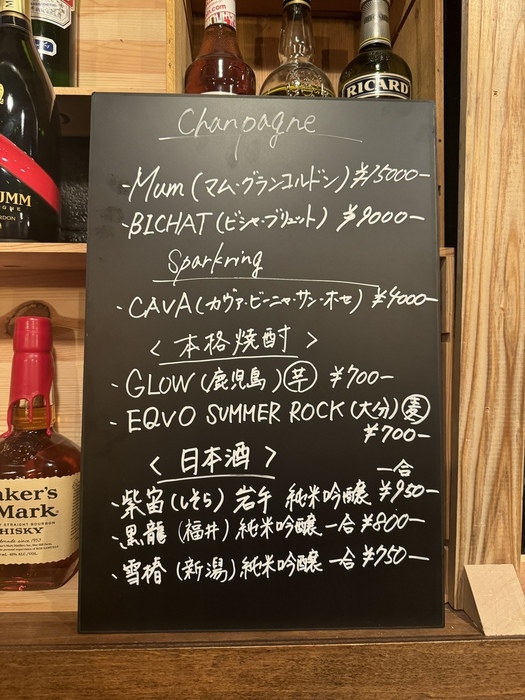 RICARD
Chanpagne
-Mum (マム・グランコルドン) ¥15000-
-BICHAT (ビシャ・ブリュット) ¥9000-
Sparkring
-CAVA (カヴァ・ビーニャ・サン・ホセ) ¥4000-
＜本格焼酎＞
-GLOW (鹿児島) 芋 ¥700-
-EQVO SUMMER ROCK (大分) 麦
¥700-
＜日本酒＞
一合
、紫宙 (しそら) 岩手 純米吟醸 ¥950-
、黒龍 (福井) 純米吟醸 一合 ¥800-
、雪椿 (新潟) 純米吟醸 一合 ¥750-
UMM
RDON
aker's
Mark
HISKY